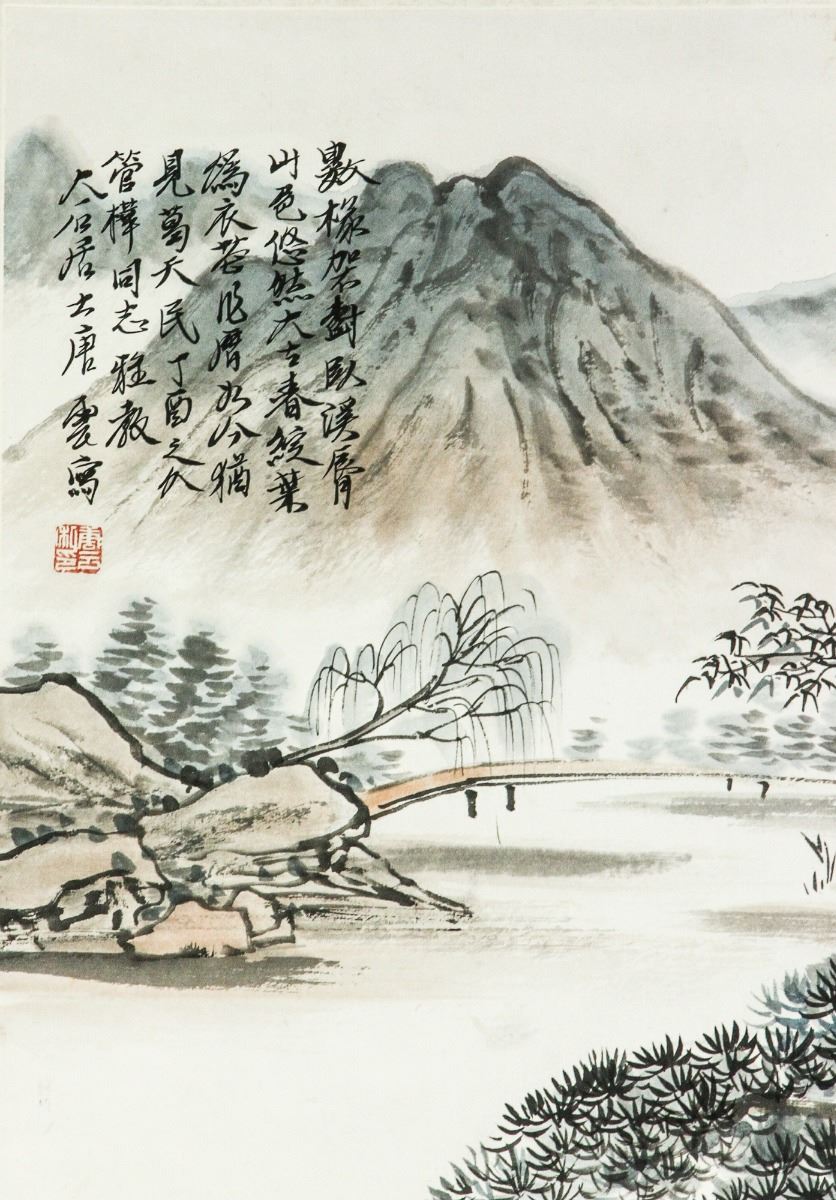 數椽對臥溪脣
山色悠然大古春葉
爲衣花作曆如今猶
見葛天民丁酉之秋
管樺同志雅教
大石居士唐雲寫
唐雲私印